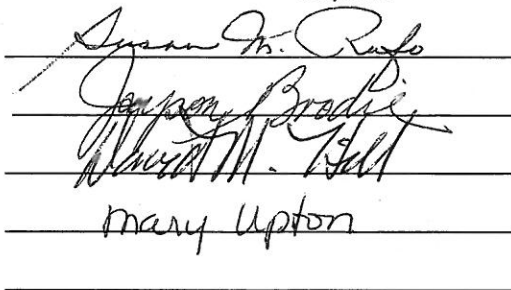 Susan M. Rufo
Jayson Brodie
David M. Hill
Mary Upton